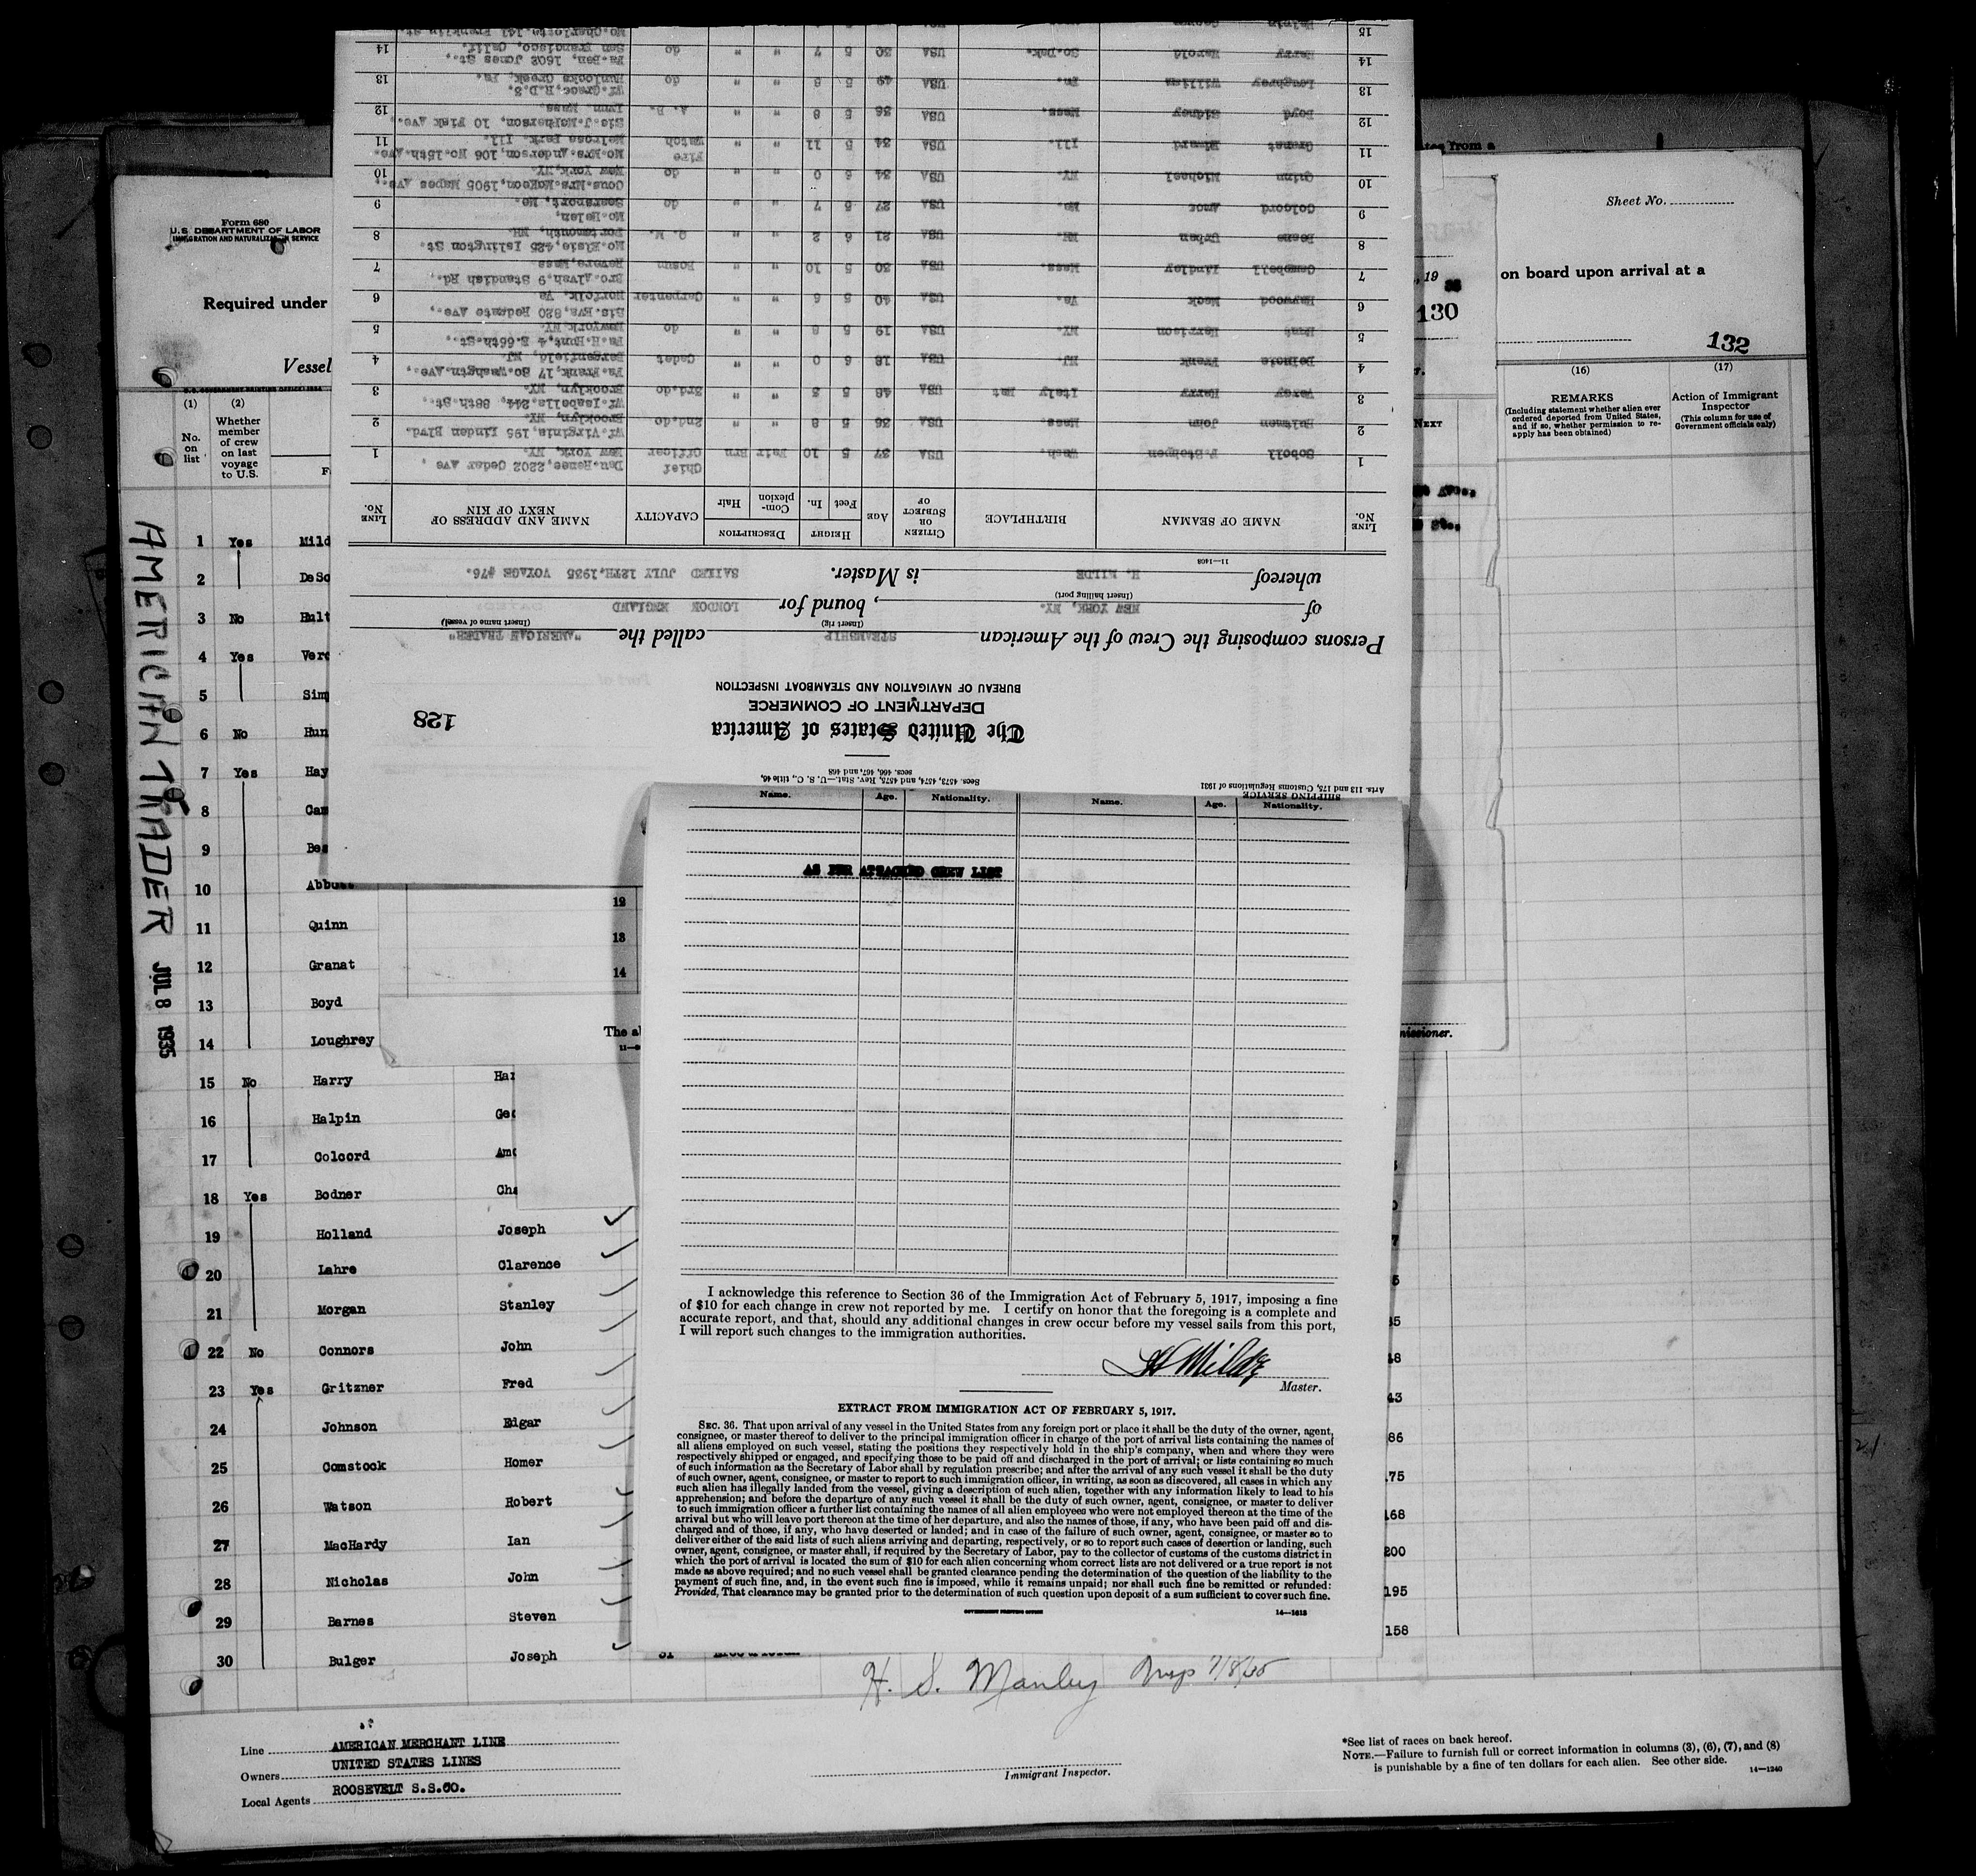 Form 680
U.S. DEPARTMENT OF LABOR
IMMIGRATION AND NATURALIZATION SERVICE
Required under
Vessel
Sheet No.
on board upon arrival at a
, 19
130
132
(1) (2)
No. on list
Whether member of crew on last voyage to U.S.
(16) (17)
REMARKS
(Including statement whether alien ever ordered deported from United States, and if so, whether permission to reapply has been obtained)
Action of Immigrant Inspector
(This column for use of Government officials only)
NEXT
AMERICAN TRADER
JUL 8 1935
1 Yes Mild
2 DeSo
3 No Hult
4 Yes Verc
5 Simp
6 No Hun
7 Yes Hay
8 Cam
9 Bes
10 Abbo
11 Quinn
12 Granat
13 Boyd
14 Loughrey
15 No Harry Har
16 Halpin Geo
17 Colcord Amo
18 Yes Bodner Cha
19 Holland Joseph
20 Lahre Clarence
21 Morgan Stanley
22 No Connors John
23 Yes Gritzner Fred
24 Johnson Edgar
25 Comstock Homer
26 Watson Robert
27 MacHardy Ian
28 Nicholas John
29 Barnes Steven
30 Bulger Joseph
12
13
14
The a
missioner.
86
175
168
200
195
158
H. S. Manley Insp 7/8/35
Line AMERICAN MERCHANT LINE
Owners UNITED STATES LINES
Local Agents ROOSEVELT S.S.CO.
Immigrant Inspector.
*See list of races on back hereof.
NOTE.—Failure to furnish full or correct information in columns (3), (6), (7), and (8)
is punishable by a fine of ten dollars for each alien. See other side.
14—1240
SHIPPING SERVICE
Arts. 113 and 175, Customs Regulations of 1931
Secs. 4573, 4574, and 4575, Rev. Stat.—U. S. C., title 46,
secs. 466, 467, and 468
The United States of America
DEPARTMENT OF COMMERCE
BUREAU OF NAVIGATION AND STEAMBOAT INSPECTION
128
Persons composing the Crew of the American STEAMSHIP called the "AMERICAN TRADER"
(Insert rig) (Insert name of vessel)
of NEW YORK, NY. , bound for LONDON ENGLAND
(Insert hailing port)
whereof H. MILDE is Master. SAILED JULY 12TH,1935 VOYAGE #76.
11—1408
LINE No. NAME OF SEAMAN BIRTHPLACE CITIZEN OR SUBJECT OF AGE HEIGHT Feet In. DESCRIPTION Complexion Hair CAPACITY NAME AND ADDRESS OF NEXT OF KIN LINE No.
1 Soboll F.Stephen Wash. USA 37 5 10 Fair Brn Chief Officer Dau.Renee,2202 Cedar Ave , New York, NY. 1
2 Hultman John Mass. USA 36 5 8 " " 2nd.do Wf.Virginia,195 Linden Blvd. Brooklyn, NY. 2
3 Vercy Harry Italy Nat USA 48 5 3 " " 3rd.do Wf.Isabella,244, 88th.St., Brooklyn, NY. 3
4 Frank NJ. USA 18 6 0 " " Cadet Fa.Frank,17 So.Washgtn.Ave., Bergenfield, NJ. 4
5 Hunt Harrison NY. USA 19 5 8 " " do Fa.H.Hunt,4 E.66th.St., Newyork,NY. 5
6 Haywood Meck Va. USA 40 5 6 " " Carpenter Sis.Eva,820 Redgate Ave., Norfolk, Va 6
7 Campbell Lindley Mass. USA 30 5 10 " " Bosun Bro.Alvah,9 Standish Rd., Revere,Mass 7
8 Beane Urban NH. USA 21 6 2 " " Q. M. Mo.Elsie,425 Islington St. Portsmouth, NH. 8
9 Colcord Amos Me. USA 27 5 7 " " do Mo.Helen, Searsport, Me. 9
10 Quinn Michael NY. USA 34 6 0 " " do Cous.Mrs.McKeon,1905 Mapes Ave., New York,NY. 10
11 Granat Edward Ill. USA 34 5 11 " " Fire Watch Mo.Mrs.Anderson,106 No.15th.Ave. Melrose Park, Ill. 11
12 Boyd Sidney Mass. USA 36 5 8 " " A. B. Sis.J.McPherson, 10 Fisk Ave., Lynn Mass. 12
13 Loughrey William Pa. USA 49 5 8 " " do Wf.Grace,R.D.3. Hunlocks Creek, Pa. 13
14 Harry Harold So.Dak. USA 30 5 7 " " do Fa.Ben, 1602 Jones St., San Francisco, Calif. 14
15 Halpin George Mo.Charlotte,141 Franklin St. 15
Name. Age. Nationality. Name. Age. Nationality.
AS PER ATTACHED CREW LIST
I acknowledge this reference to Section 36 of the Immigration Act of February 5, 1917, imposing a fine
of $10 for each change in crew not reported by me. I certify on honor that the foregoing is a complete and
accurate report, and that, should any additional changes in crew occur before my vessel sails from this port,
I will report such changes to the immigration authorities.
H Milde
Master.
EXTRACT FROM IMMIGRATION ACT OF FEBRUARY 5, 1917.
SEC. 36. That upon arrival of any vessel in the United States from any foreign port or place it shall be the duty of the owner, agent,
consignee, or master thereof to deliver to the principal immigration officer in charge of the port of arrival lists containing the names of
all aliens employed on such vessel, stating the positions they respectively hold in the ship's company, when and where they were
respectively shipped or engaged, and specifying those to be paid off and discharged in the port of arrival; or lists containing so much
of such information as the Secretary of Labor shall by regulation prescribe; and after the arrival of any such vessel it shall be the duty
of such owner, agent, consignee, or master to report to such immigration officer, in writing, as soon as discovered, all cases in which any
such alien has illegally landed from the vessel, giving a description of such alien, together with any information likely to lead to his
apprehension; and before the departure of any such vessel it shall be the duty of such owner, agent, consignee, or master to deliver
to such immigration officer a further list containing the names of all alien employees who were not employed thereon at the time of the
arrival but who will leave port thereon at the time of her departure, and also the names of those, if any, who have been paid off and dis-
charged and of those, if any, who have deserted or landed; and in case of the failure of such owner, agent, consignee, or master so to
deliver either of the said lists of such aliens arriving and departing, respectively, or so to report such cases of desertion or landing, such
owner, agent, consignee, or master shall, if required by the Secretary of Labor, pay to the collector of customs of the customs district in
which the port of arrival is located the sum of $10 for each alien concerning whom correct lists are not delivered or a true report is not
made as above required; and no such vessel shall be granted clearance pending the determination of the question of the liability to the
payment of such fine, and, in the event such fine is imposed, while it remains unpaid; nor shall such fine be remitted or refunded:
Provided, That clearance may be granted prior to the determination of such question upon deposit of a sum sufficient to cover such fine.
GOVERNMENT PRINTING OFFICE 14—1613